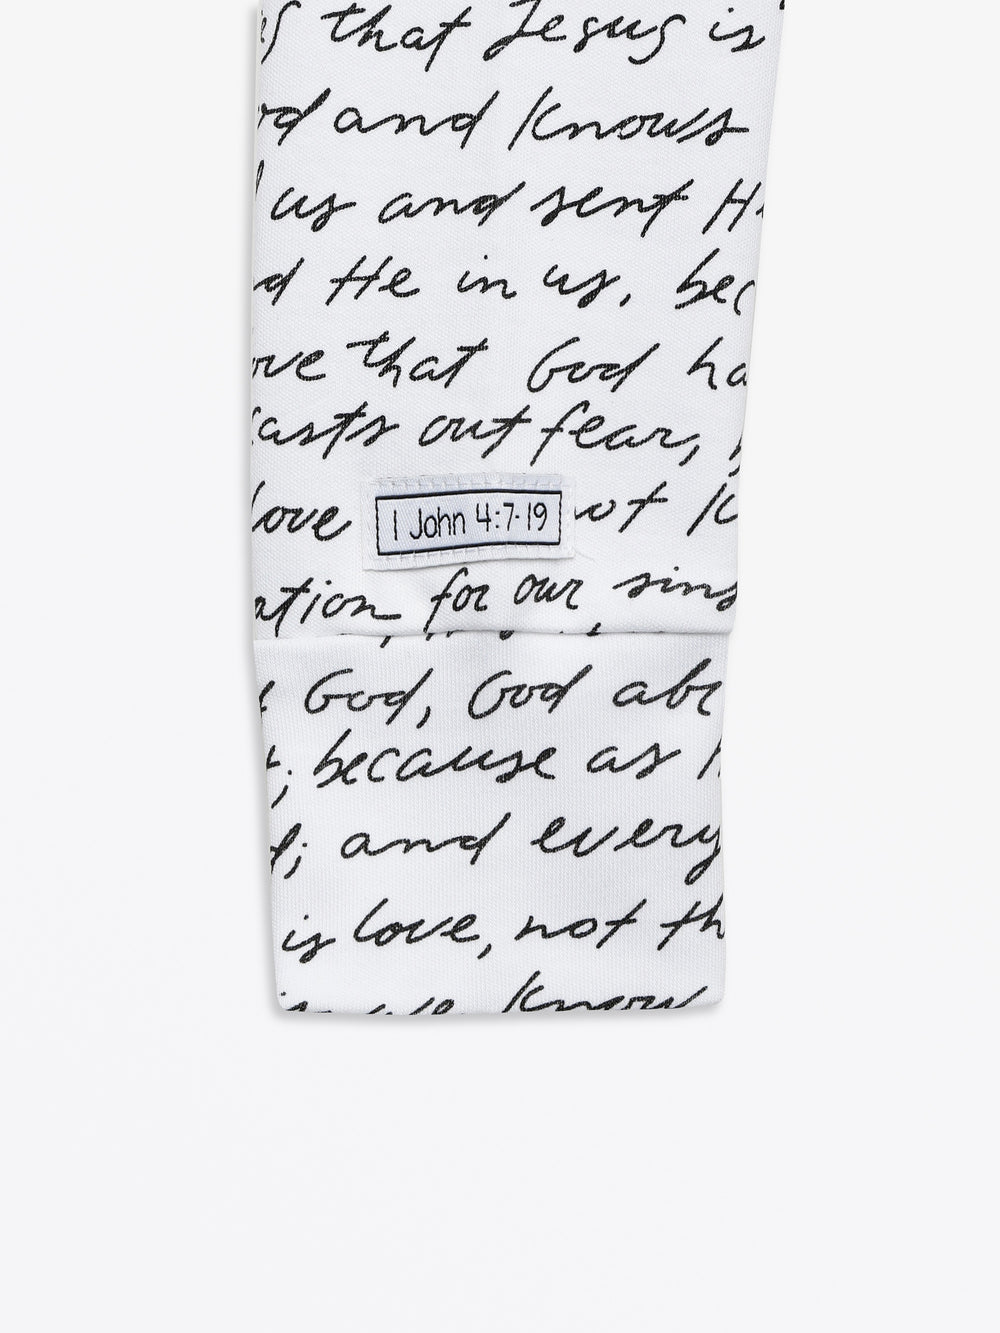 that Jesus is
and Knows
us and sent
He in us, bec
ove that God ha
casts out fear,
love
1 John 4:7-19
ation for our sins
God, God abc
; because as
; and every
is love, not th
we know